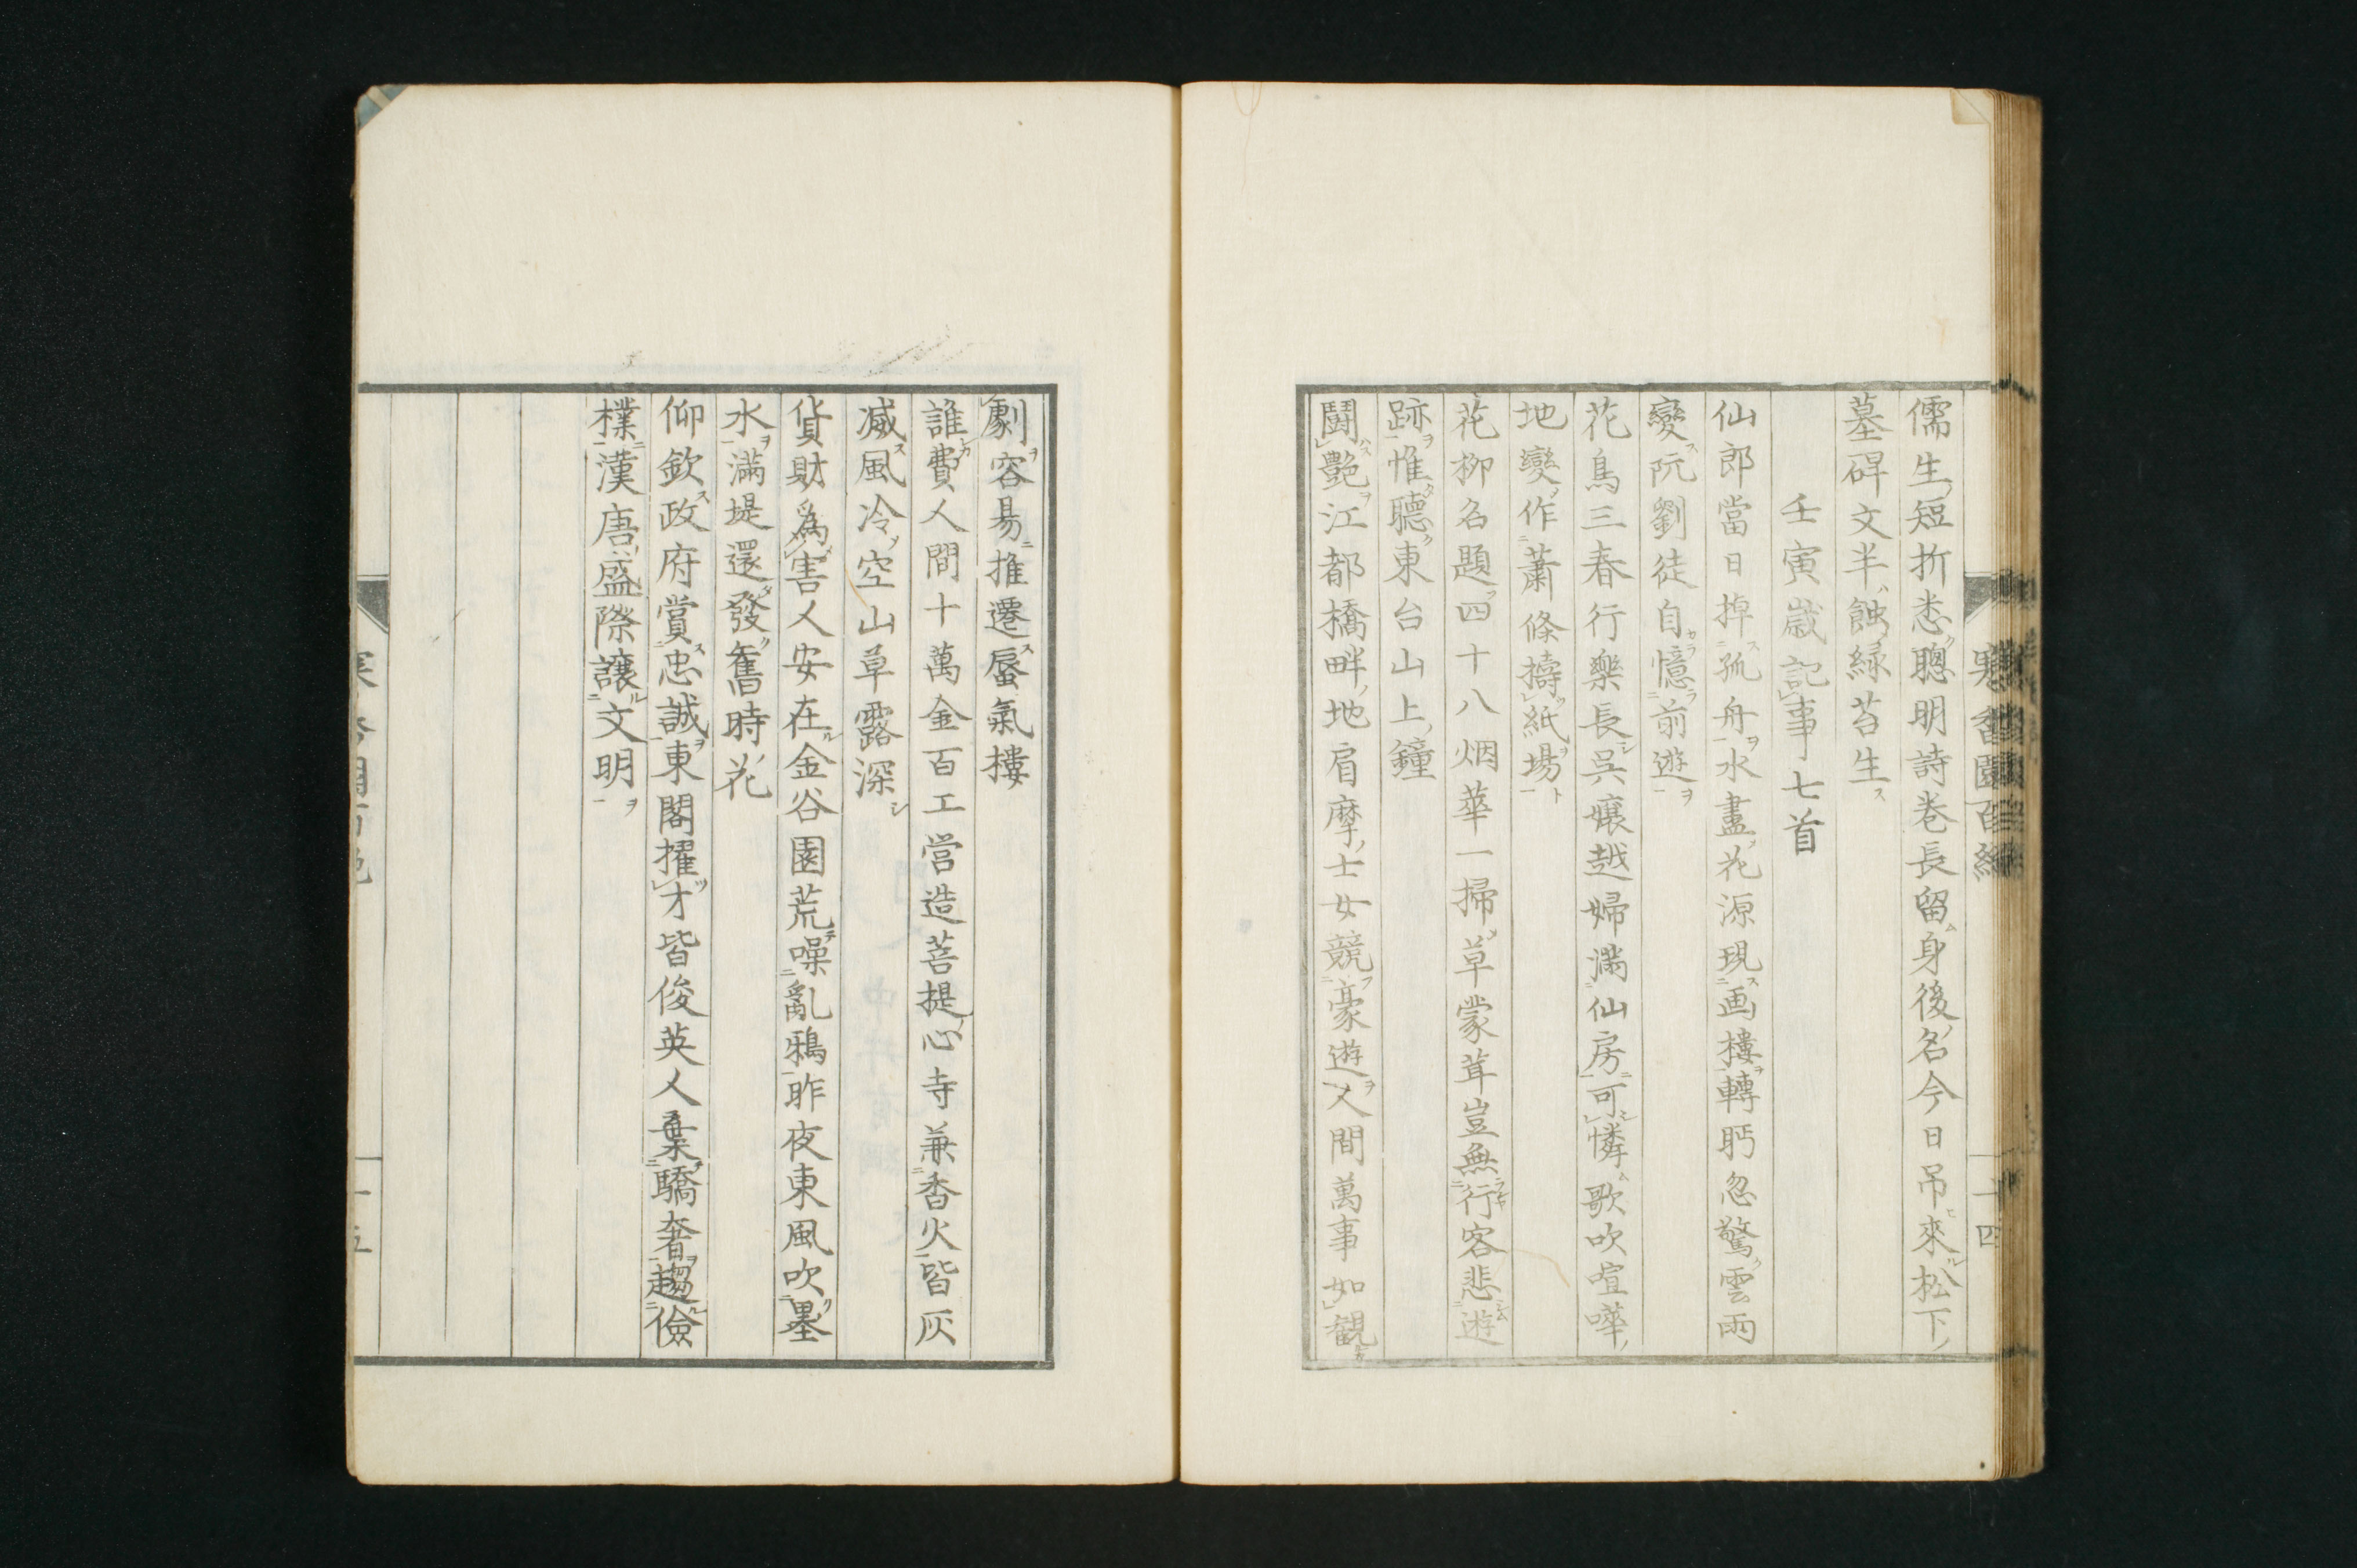 儒生短折悉聰明詩巻長留身後名今日吊來松下
墓碑文半蝕緑苔生
壬寅歳記事七首
仙郎當日掉孤舟水盡花源現画樓轉眄忽驚雲雨
變阮劉徒自憶前遊
花鳥三春行樂長呉孃越婦滿仙房可憐歌吹喧嘩
地變作蕭條擣紙場
花柳名題四十八烟華一掃草蒙茸豈無行客悲遊
跡惟聽東台山上鐘
鬪艶江都橋畔地肩摩士女競豪遊人間萬事如観
劇容易推遷蜃氣樓
誰費人間十萬金百工営造菩提心寺兼香火皆灰
滅風冷空山草露深
貨財為害人安在金谷園荒噪亂鴉昨夜東風吹墨
水滿堤還發舊時花
仰欽政府賞忠誠東閣擢才皆俊英人棄驕奢趨儉
樸漢唐盛際讓文明